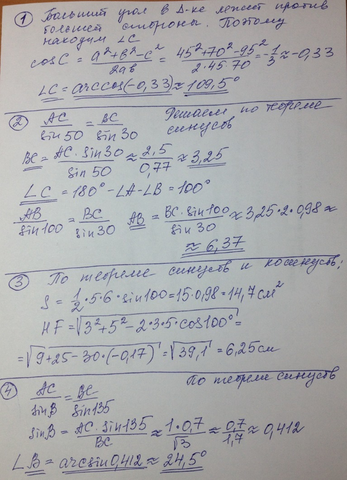 ① Больший угол в Δ-ке лежит против
большей стороны. Поэтому
находим ∠C
cosC = (a²+b²-c²)/(2ab) = (45²+70²-95²)/(2·45·70) = -1/3 ≈ -0,33
∠C = arccos(-0,33) ≈ 109,5°
② AC/sin50 = BC/sin30 Решаем по теореме
синусов
BC = AC·sin30/sin50 ≈ 2,5/0,77 ≈ 3,25
∠C = 180° - ∠A - ∠B = 100°
AB/sin100 = BC/sin30 AB = BC·sin100/sin30 ≈ 3,25·2·0,98 ≈
≈ 6,37
③ По теореме синусов и косинусов:
S = 1/2·5·6·sin100 = 15·0,98 = 14,7 см²
HF = √(3²+5²-2·3·5·cos100°) =
= √(9+25-30·(-0,17)) = √39,1 = 6,25 см
④ AC/sinB = BC/sin135 По теореме синусов
sinB = AC·sin135/BC ≈ 1·0,7/√3 ≈ 0,7/1,7 ≈ 0,412
∠B = arcsin0,412 ≈ 24,5°